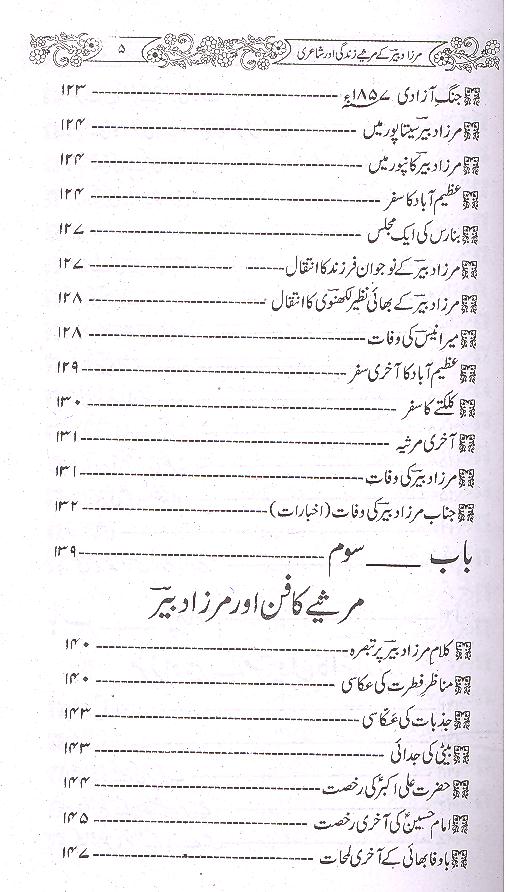 مرزا دبیرؔ کے مرثیے زندگی اور شاعری ۵
جنگِ آزادی ۱۸۵۷ء ---------- ۱۲۳
مرزا دبیرؔ سیتاپور میں ---------- ۱۲۴
مرزا دبیرؔ کانپور میں ---------- ۱۲۴
عظیم آباد کا سفر ---------- ۱۲۴
بنارس کی ایک مجلس ---------- ۱۲۷
مرزا دبیرؔ کے نوجوان فرزند کا انتقال ---------- ۱۲۷
مرزا دبیرؔ کے بھائی نظیرؔ لکھنوی کا انتقال ---------- ۱۲۸
میر انیسؔ کی وفات ---------- ۱۲۸
عظیم آباد کا آخری سفر ---------- ۱۲۹
کلکتے کا سفر ---------- ۱۳۰
آخری مرثیہ ---------- ۱۳۱
مرزا دبیرؔ کی وفات ---------- ۱۳۱
جناب مرزا دبیرؔ کی وفات (اخبارات) ---------- ۱۳۲
باب ____ سوم ---------- ۱۳۹
مرثیے کا فن اور مرزا دبیرؔ
کلامِ مرزا دبیرؔ پر تبصرہ ---------- ۱۴۰
مناظرِ فطرت کی عکاسی ---------- ۱۴۰
جذبات کی عکّاسی ---------- ۱۴۳
بیٹی کی جدائی ---------- ۱۴۳
حضرت علی اکبرؑ کی رخصت ---------- ۱۴۴
امام حسینؑ کی آخری رخصت ---------- ۱۴۵
باوفا بھائی کے آخری لمحات ---------- ۱۴۷